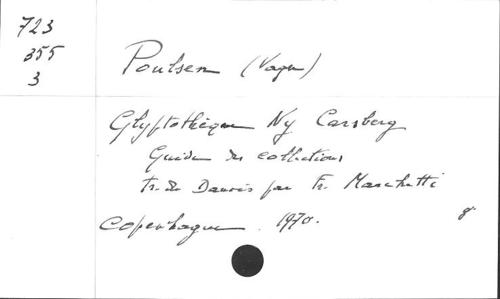 723
355
3
Poulsen (Vagn)
Glyptothèque Ny Carsberg
Guide des collections
tr. du Danois par Fr. Marchetti
Copenhague. 1970.
8°